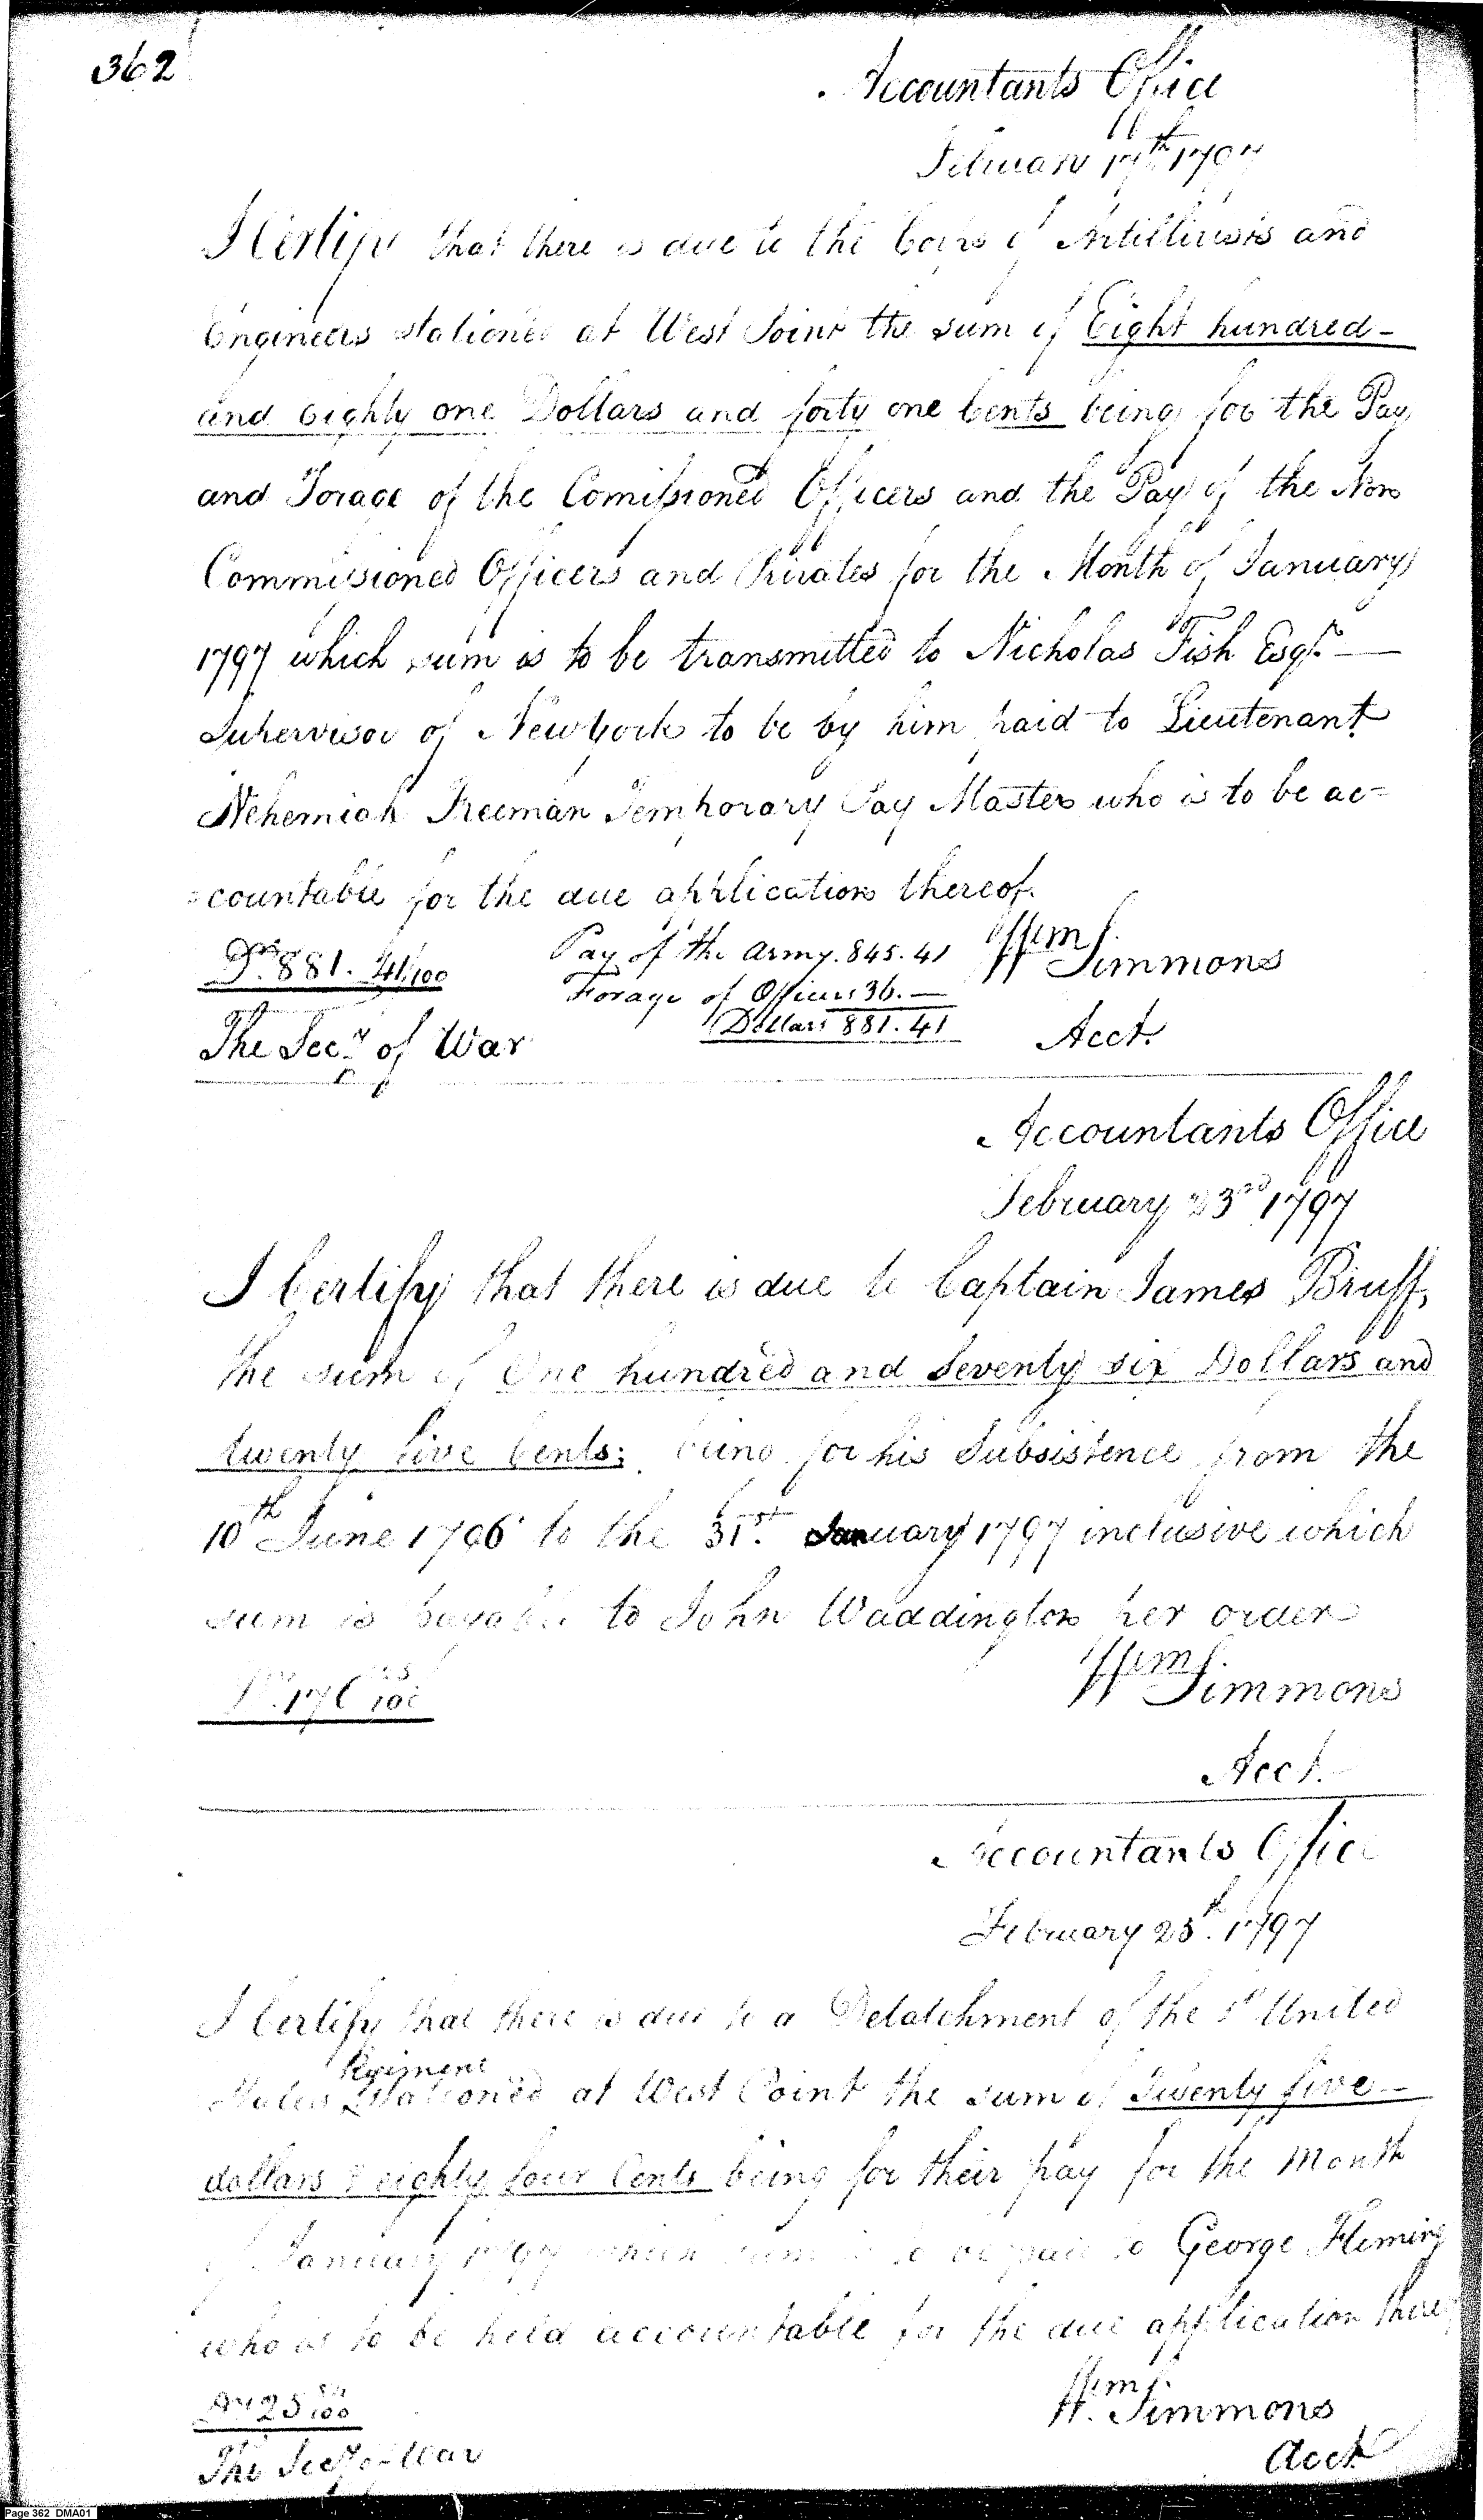 362
Accountants Office
February 17th 1797
I Certify that there is due to the Corps of Artillerists and
Engineers stationed at West Point the sum of Eight hundred-
and eighty one Dollars and forty one Cents being for the Pay
and Forage of the Comissioned Officers and the Pay of the Non
Commissioned Officers and Privates for the Month of January
1797 which sum is to be transmitted to Nicholas Fish Esqr.—
Supervisor of New York to be by him paid to Lieutenant
Nehemiah Freeman Temporary Pay Master who is to be ac=
=countable for the due application thereof.
Drs. 881. 41/100 Pay of the Army. 845. 41 Wm Simmons
Forage of Officers 36.—
Dollars 881. 41
The Secy. of War Acct.
Accountants Office
February 23rd 1797
I Certify that there is due to Captain James Bruff,
the sum of One hundred and Seventy six Dollars and
twenty five Cents; being for his Subsistence from the
10th June 1796 to the 31st. January 1797 inclusive which
sum is payable to John Waddington per order
176 25/100 Wm Simmons
Acct.
Accountants Office
February 25th. 1797
I Certify that there is due to a Detatchment of the 1st United
Regiment
States stationed at West Point the sum of Twenty five—
dollars & eighty four Cents being for their pay for the Month
of January 1797 which sum is to be paid to George Fleming
who is to be held accountable for the due application thereof
Drs 25 84/100 Wm. Simmons
The Secy of War Acct
Page 362 DMA01